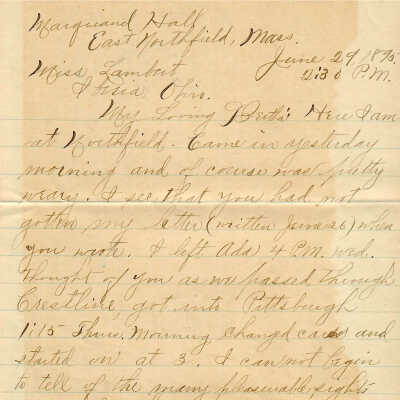 Marquand Hall
East Northfield, Mass.
June 29, 1895
Miss Lambert 2:30 P.M.
Ohio.
My Loving Here I am
at Northfield. Came in yesterday
morning and of course was pretty
weary. I see that you had not
gotten my letter (written June 26) when
you wrote. I left Ada 4 P.M. Wed.
Thought of you as we passed through
Crestline, got into Pittsburgh
1:15 Thurs. Morning changd cars and
started on at 3. I can not begin
to tell of the many pleasurable sights